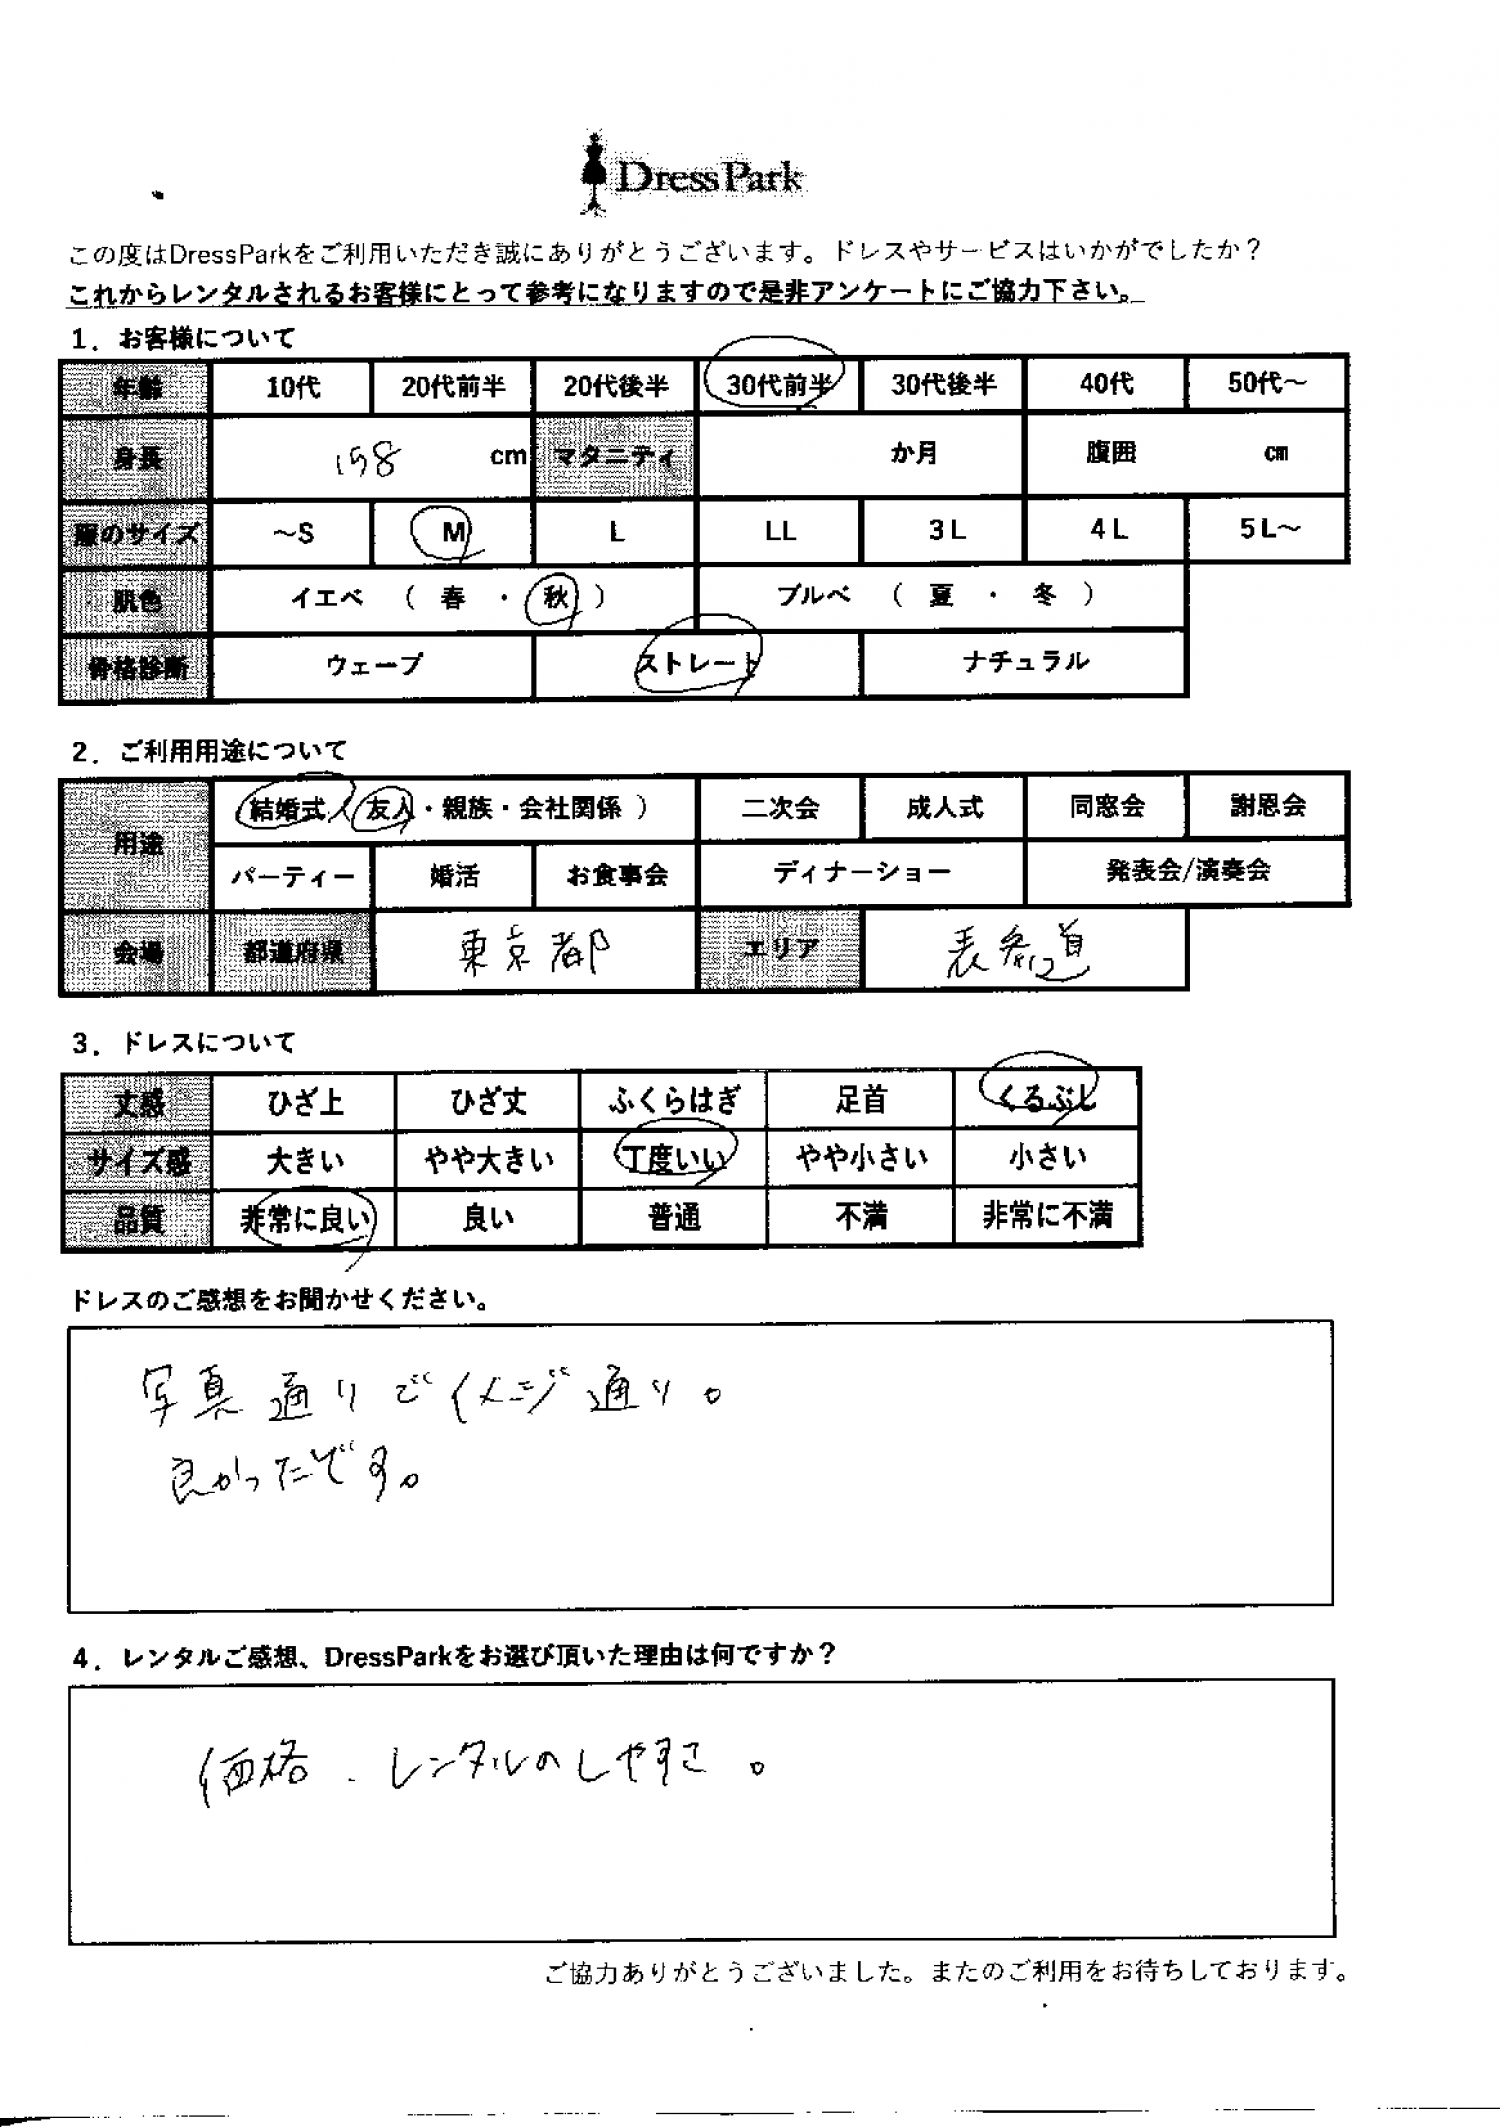 DressPark
この度はDressParkをご利用いただき誠にありがとうございます。ドレスやサービスはいかがでしたか？
これからレンタルされるお客様にとって参考になりますので是非アンケートにご協力下さい。
1．お客様について
年齢 10代 20代前半 20代後半 30代前半 30代後半 40代 50代～
身長 158 cm マタニティ か月 腹囲 cm
服のサイズ ～S M L LL 3L 4L 5L～
肌色 イエベ （ 春 ・ 秋 ） ブルベ （ 夏 ・ 冬 ）
骨格診断 ウェーブ ストレート ナチュラル
2．ご利用用途について
用途 結婚式（友人・親族・会社関係 ） 二次会 成人式 同窓会 謝恩会
パーティー 婚活 お食事会 ディナーショー 発表会/演奏会
会場 都道府県 東京都 エリア 表参道
3．ドレスについて
丈感 ひざ上 ひざ丈 ふくらはぎ 足首 くるぶし
サイズ感 大きい やや大きい 丁度いい やや小さい 小さい
品質 非常に良い 良い 普通 不満 非常に不満
ドレスのご感想をお聞かせください。
写真通りでイメージ通り。
良かったです。
4．レンタルご感想、DressParkをお選び頂いた理由は何ですか？
価格、レンタルのしやすさ。
ご協力ありがとうございました。またのご利用をお待ちしております。